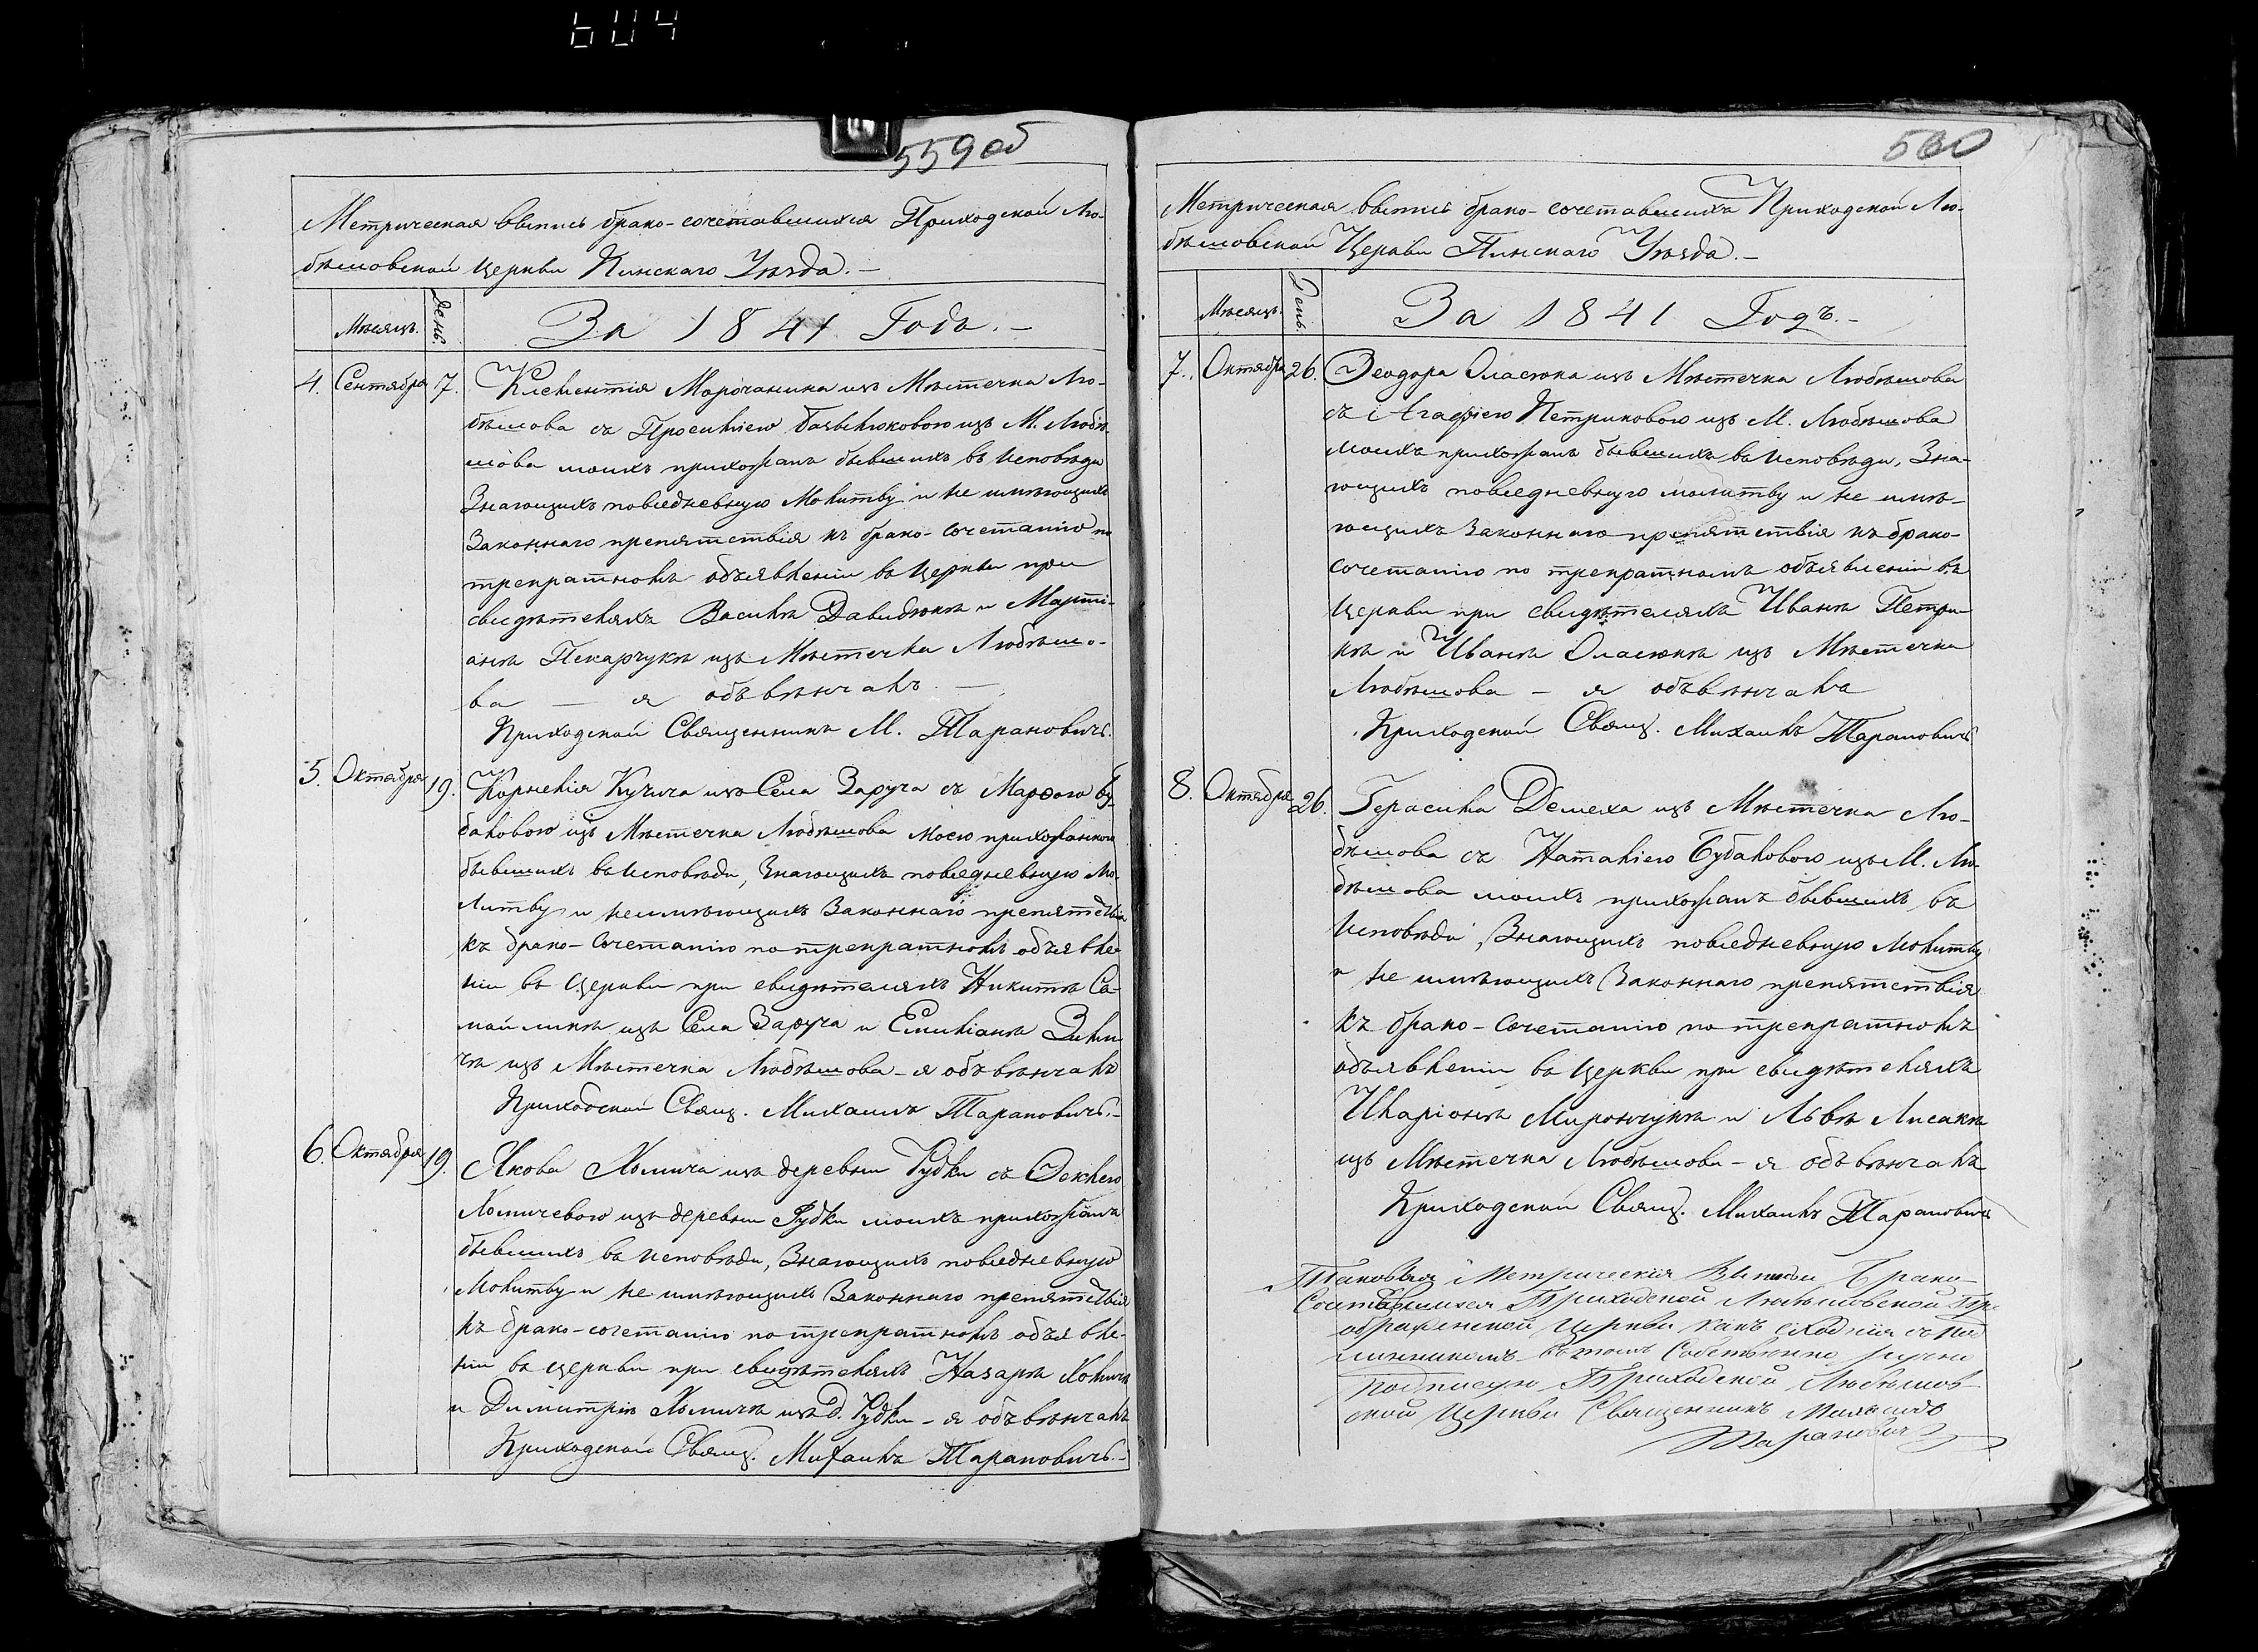 604
559 об
Метрическая выпись брако-сочетавшихся Приходской Лю-
бѣшовской Церкви Пинскаго Уѣзда. –
Мѣсяцъ.
День
За 1841 Годъ. –
4. Сентября 7. Клементія Морочаника изъ Мѣстечка Лю-
бѣшова съ Просинією изъ М. Любѣ-
шова моихъ прихожанъ бывшихъ въ исповѣди
Знающихъ повседневную Молитву и не имѣющихъ
Законнаго препятствія къ брако-сочетанію по
трекратномъ объявленіи въ Церкви при
свидѣтеляхъ Василѣ Давидюкѣ и Марти-
анѣ Пекарчукѣ изъ Мѣстечка Любѣшо-
ва — я объвѣнчалъ. —
Приходской Священникъ М. Тарановичъ.
5. Октября 19. Корнелія Кучича изъ Села Заруча съ Марѳою Бу-
баковою изъ Мѣстечка Любѣшова моею прихожанкою
бывшихъ въ исповѣди, Знающихъ повседневную Мо-
литву и неимѣющихъ Законнаго препятствія
къ брако-сочетанію по трекратномъ объявле-
ніи въ Церкви при свидѣтеляхъ Никитѣ Са-
мойликѣ изъ Села Заруча и Емиліанѣ
изъ Мѣстечка Любѣшова – я объвѣнчалъ
Приходской Свящ. Михаилъ Тарановичъ. –
6. Октября 19. Якова Хомича изъ деревни Рудки съ Ѳеклею
Хомичевою изъ деревни Рудки моихъ прихожанъ
бывшихъ въ исповѣди, Знающихъ повседневную
Молитву и не имѣющихъ Законнаго препятствія
къ брако-сочетанію по трекратномъ объявле-
ніи въ церкви при свидѣтеляхъ Назарѣ Хомичѣ
и Димитріѣ Хомичѣ изъ д. Рудки – я объвѣнчалъ
Приходской Свящ. Михаилъ Тарановичъ. –
560
Метрическая выпись брако-сочетавшихся Приходской Лю-
бѣшовской Церкви Пинскаго Уѣзда. –
Мѣсяцъ.
День.
За 1841 Годъ. –
7. Октября 26. Ѳеодора Оласюка изъ Мѣстечка Любѣшова
съ Агафіею Петриковою изъ М. Любѣшова
моихъ прихожанъ бывшихъ въ исповѣди, Зна-
ющихъ повседневную молитву и не имѣ-
ющихъ Законнаго препятствія къ брако-
сочетанію по трекратномъ объявленіи въ
Церкви при свидѣтеляхъ Иванѣ Петри-
кѣ и Иванѣ Оласюкѣ изъ Мѣстечка
Любѣшова – я объвѣнчалъ
Приходской Свящ. Михаилъ Тарановичъ
8. Октября 26. Герасима Демеха изъ Мѣстечка Лю-
бѣшова съ Наталіею Бубаковою изъ М. Лю-
бѣшова моихъ прихожанъ бывшихъ въ
исповѣди Знающихъ повседневную Молитву
и не имѣющихъ Законнаго препятствія
къ брако-сочетанію по трекратномъ
объявленіи въ Церкви при свидѣтеляхъ
Иларіонѣ Мирончукѣ и Львѣ Лисакѣ
изъ Мѣстечка Любѣшова – я объвѣнчалъ
Приходской Свящ. Михаилъ Тарановичъ
Таковыя Метрическія Выписи Брако-
Сочетавшихся Приходской Любѣшовской Пре-
ображенской Церкви какъ сходнія съ под-
линникомъ въ томъ Собственно ручно
подписую Приходской Любѣшов-
ской Церкви Священникъ Михаилъ
Тарановичъ